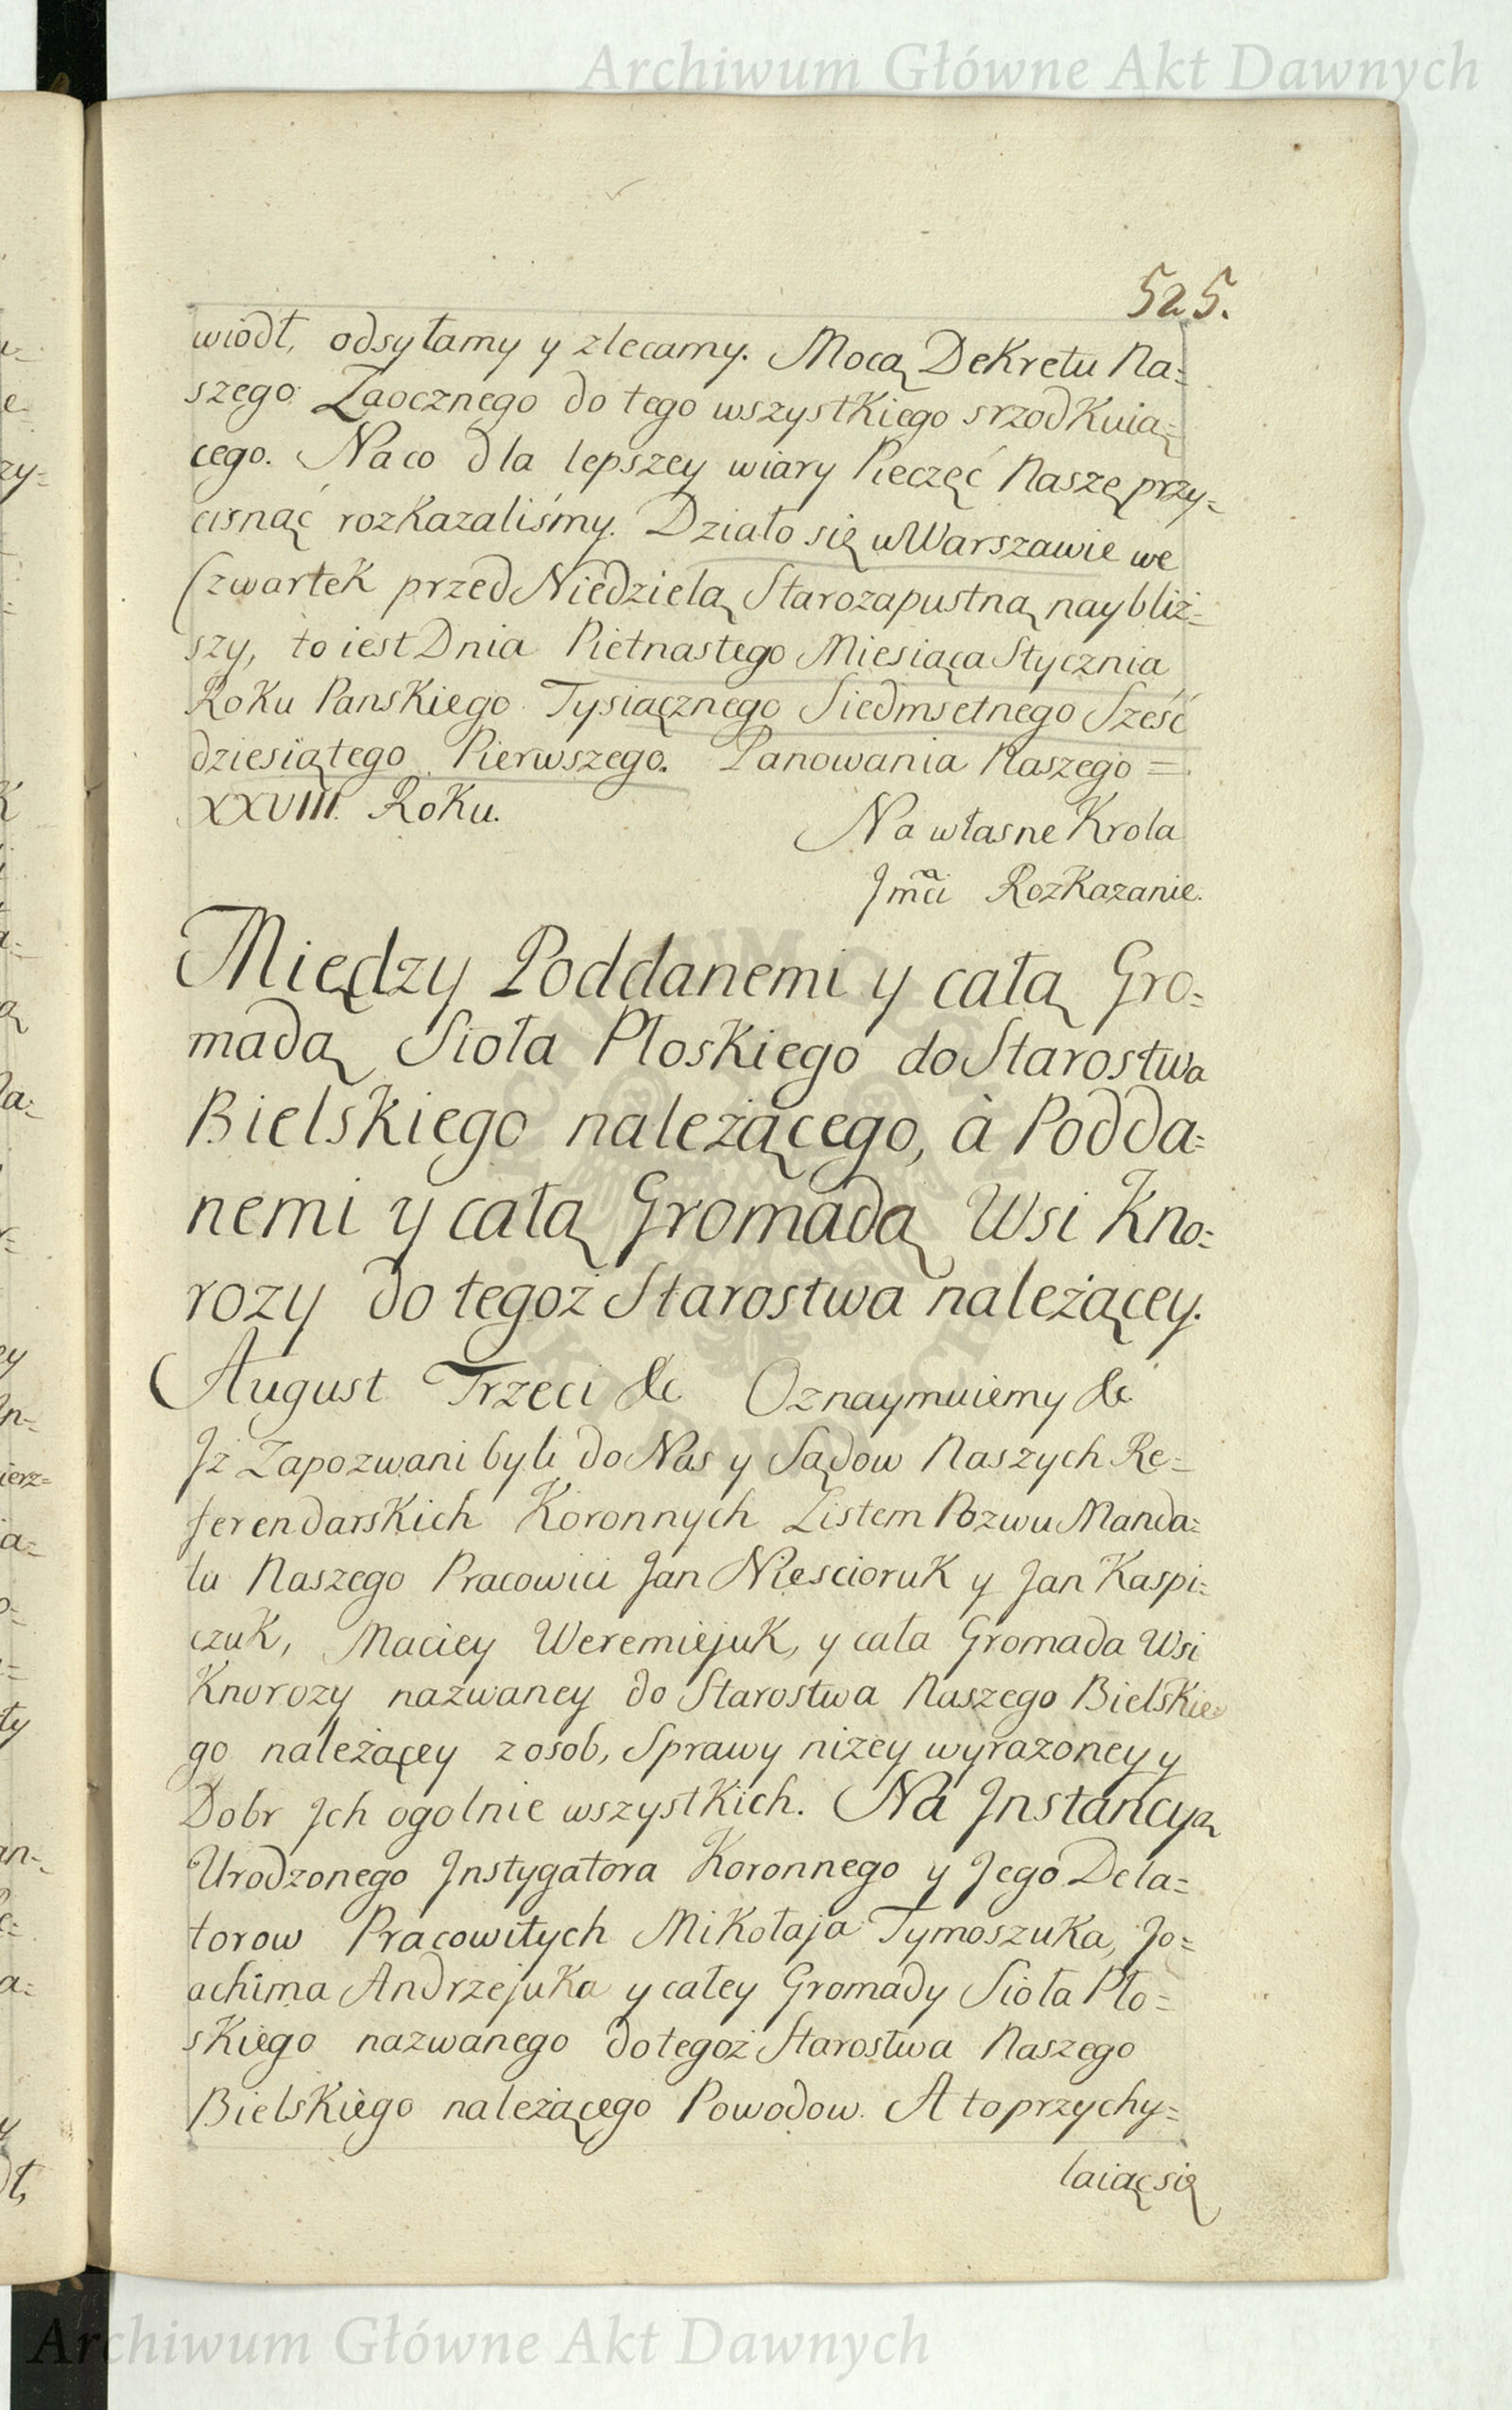 Archiwum Główne Akt Dawnych
525.
wiodł, odsyłamy y zlecamy. Mocą Dekretu Na=
szego Zaocznego do tego wszystkiego srzodkuią=
cego. Naco dla lepszey wiary Pieczęć Naszę przy=
cisnąć rozkazaliśmy. Działo się w Warszawie we
Czwartek przed Niedzielą Starozapustną naybliż=
szy, to iest Dnia Pietnastego Miesiąca Stycznia
Roku Panskiego Tysiącznego Siedmsetnego Sześć
dziesiątego Pierwszego. Panowania Naszego =
XXVIII. Roku.
Na własne Krola
Jmci Rozkazanie.
Między Poddanemi y całą Gro=
madą Sioła Płoskiego do Starostwa
Bielskiego należącego, à Podda=
nemi y całą Gromadą Wsi Kno=
rozy do tegoż Starostwa należącey.
August Trzeci &c Oznaymuiemy &c
Jż Zapozwani byli do Nas y Sądow Naszych Re=
ferendarskich Koronnych Listem Pozwu Manda=
tu Naszego Pracowici Jan Niescioruk y Jan Kaspi=
czuk, Maciey Weremiejuk, y cała Gromada Wsi
Knorozy nazwaney do Starostwa Naszego Bielskie=
go należącey z osob, Sprawy niżey wyrażoney y
Dobr Jch ogolnie wszystkich. Na Jnstancyą
Urodzonego Jnstygatora Koronnego y Jego Dela=
torow Pracowitych Mikołaja Tymoszuka, Jo=
achima Andrzejuka y całey Gromady Sioła Pło=
skiego nazwanego do tegoż Starostwa Naszego
Bielskiego należącego Powodow. A to przychy=
laiąc się
Archiwum Główne Akt Dawnych